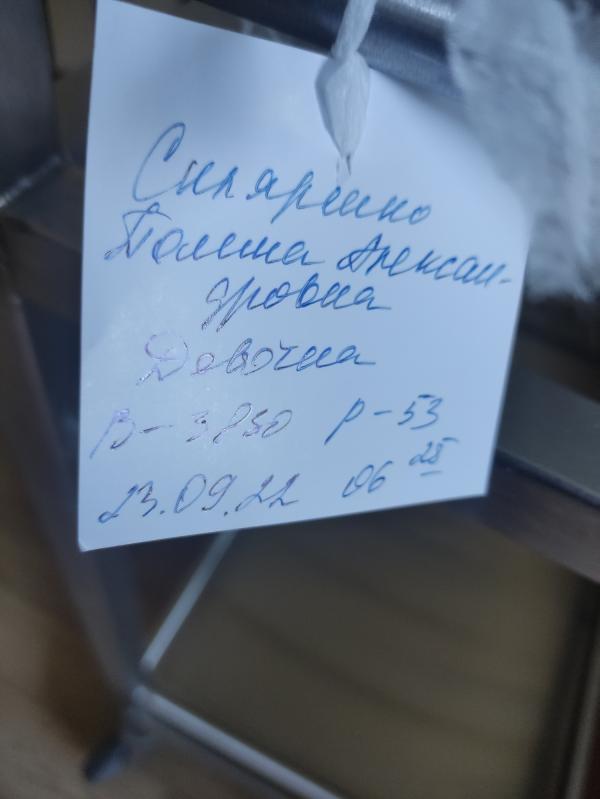 Скляренко
Полина Алексан-
дровна
Девочка
В-3850 р-53
23.09.22 06 25